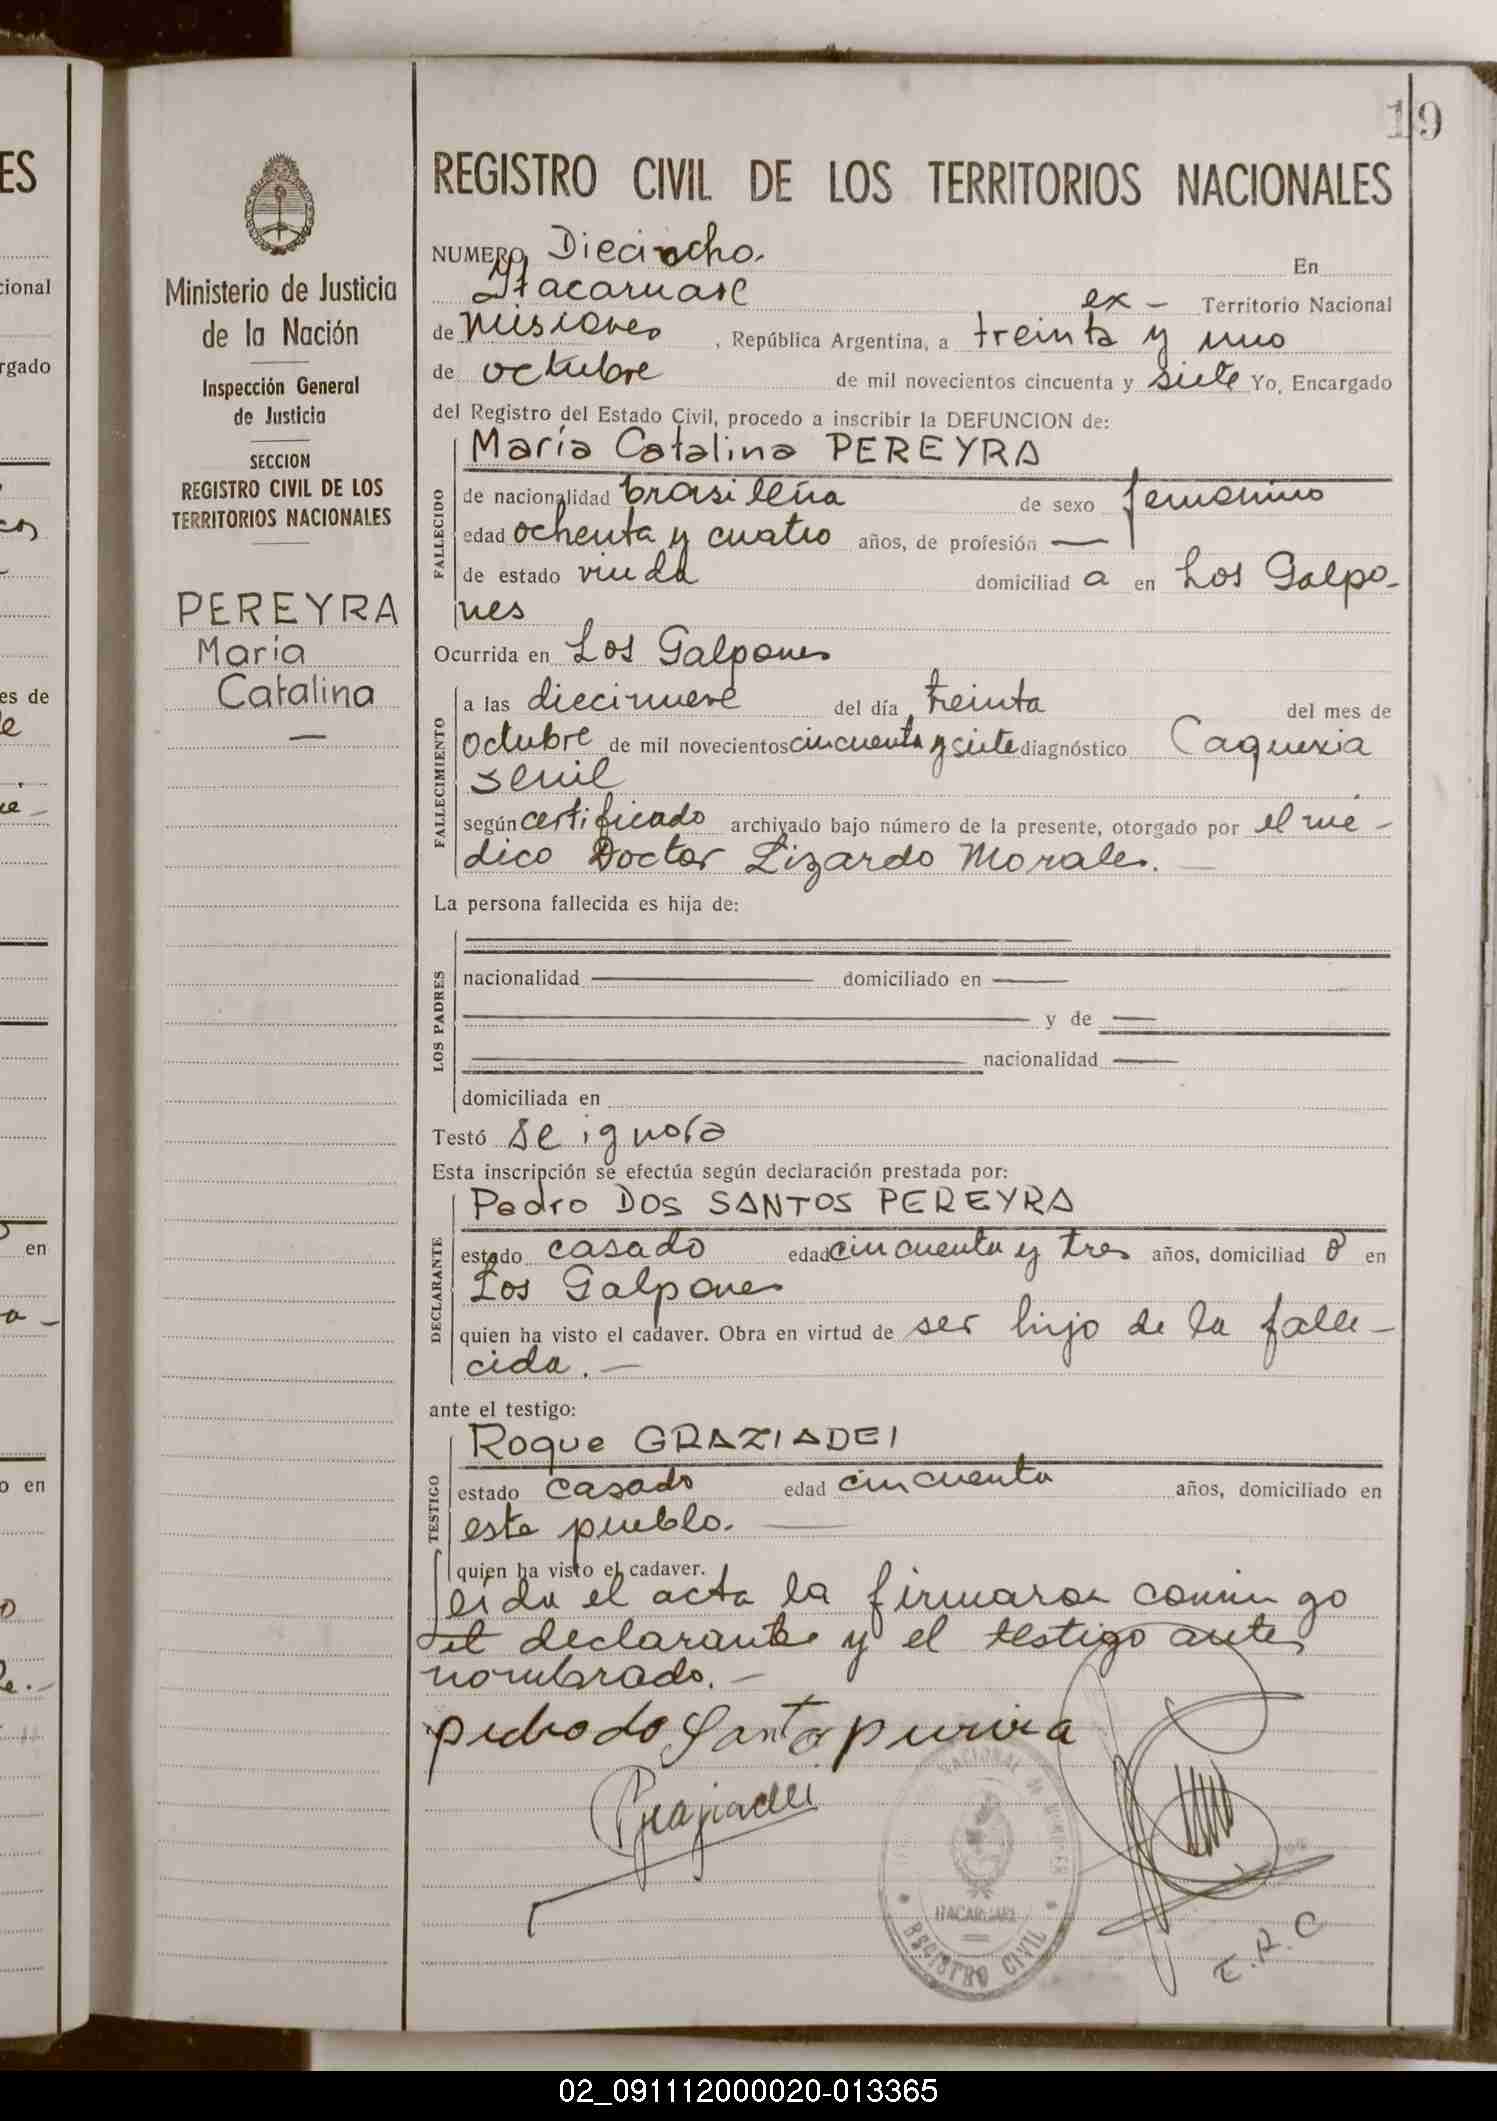 19
REGISTRO CIVIL DE LOS TERRITORIOS NACIONALES
Ministerio de Justicia
de la Nación
Inspección General
de Justicia
SECCION
REGISTRO CIVIL DE LOS
TERRITORIOS NACIONALES
PEREYRA
María
Catalina
—
NUMERO Dieciocho. En
Itacaruaré ex - Territorio Nacional
de Misiones, República Argentina, a treinta y uno
de octubre de mil novecientos cincuenta y siete Yo, Encargado
del Registro del Estado Civil, procedo a inscribir la DEFUNCION de:
María Catalina PEREYRA
FALLECIDO
de nacionalidad brasileña de sexo femenino
edad ochenta y cuatro años, de profesión —
de estado viuda domiciliad a en Los Galpo-
nes
Ocurrida en Los Galpones
FALLECIMIENTO
a las diecinueve del día treinta del mes de
octubre de mil novecientos cincuenta y siete diagnóstico Caquexia
senil
según certificado archivado bajo número de la presente, otorgado por el mé-
dico Doctor Lizardo Morales. —
La persona fallecida es hija de:
LOS PADRES
nacionalidad — domiciliado en —
— y de —
— nacionalidad —
domiciliada en
Testó se ignora
Esta inscripción se efectúa según declaración prestada por:
Pedro DOS SANTOS PEREYRA
DECLARANTE
estado casado edad cincuenta y tres años, domiciliad o en
Los Galpones
quien ha visto el cadaver. Obra en virtud de ser hijo de la falle-
cida. —
ante el testigo:
Roque GRAZIADEI
TESTIGO
estado casado edad cincuenta años, domiciliado en
este pueblo. —
quien ha visto el cadaver.
Leída el acta la firmaron conmigo
el declarante y el testigo antes
nombrado. —
pedro do Santo pereira
Graziadei
ITACARUARE
REGISTRO CIVIL
E.R.C
02_091112000020-013365